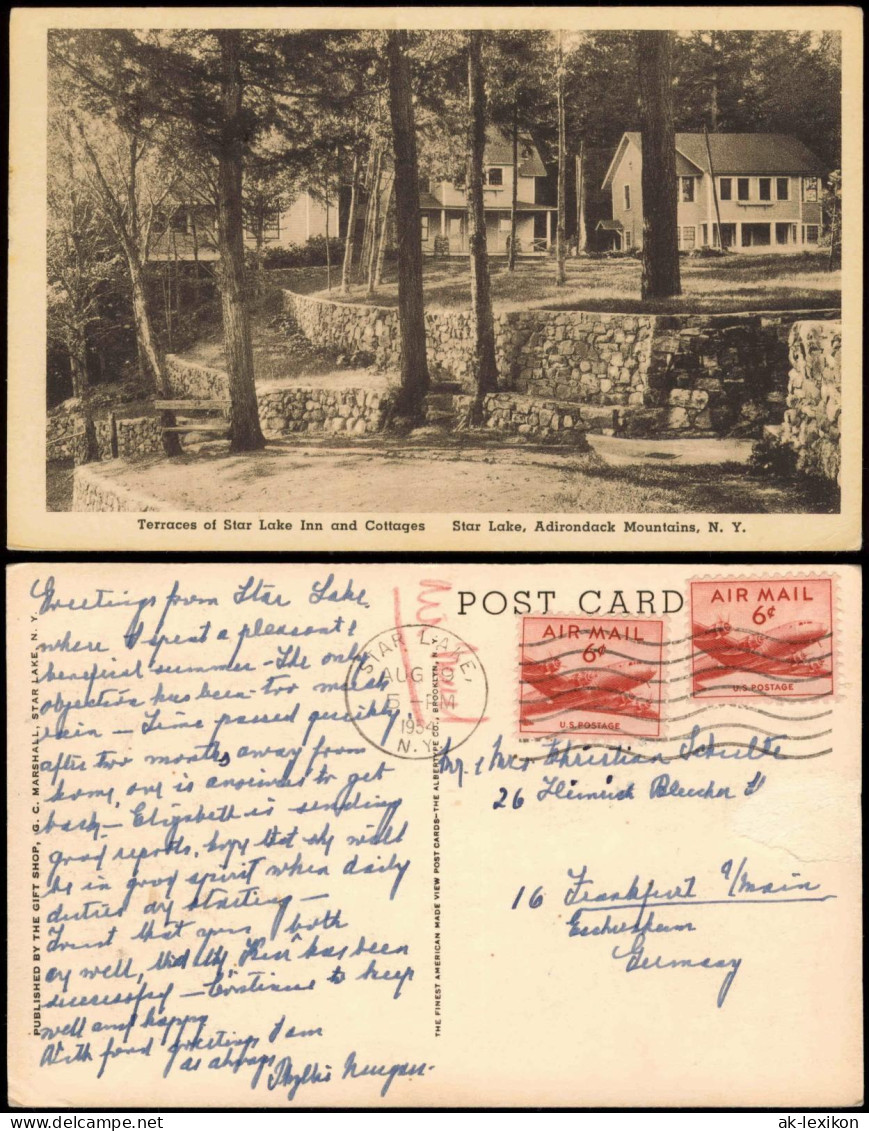 Terraces of Star Lake Inn and Cottages Star Lake, Adirondack Mountains, N. Y.
PUBLISHED BY THE GIFT SHOP, G. C. MARSHALL, STAR LAKE, N. Y.
Greetings from Star Lake,
where I spent a pleasant &
beneficial summer - The only
objection has been too much
rain - Time passed quickly,
after two months away from
home, one is anxious to get
back - Elizabeth is sending
good reports, hope that she will
be in good spirit when daily
duties are starting -
Trust that you both
are well, that the has been
successful - Continue to keep
well and happy
With fond greetings I am
as always
Phyllis
THE FINEST AMERICAN MADE VIEW POST CARDS—THE ALBERTYPE CO., BROOKLYN, N
POST CARD
Air Mail
STAR LAKE,
AUG
5 PM
1954
N.Y.
AIR MAIL
6¢
U.S. POSTAGE
AIR MAIL
6¢
U.S. POSTAGE
Mr & Mrs Christian Schulte
26 Heinrich Bleicher St
16 Frankfurt a/Main
Eschersheim
Germany
ak-lexikon